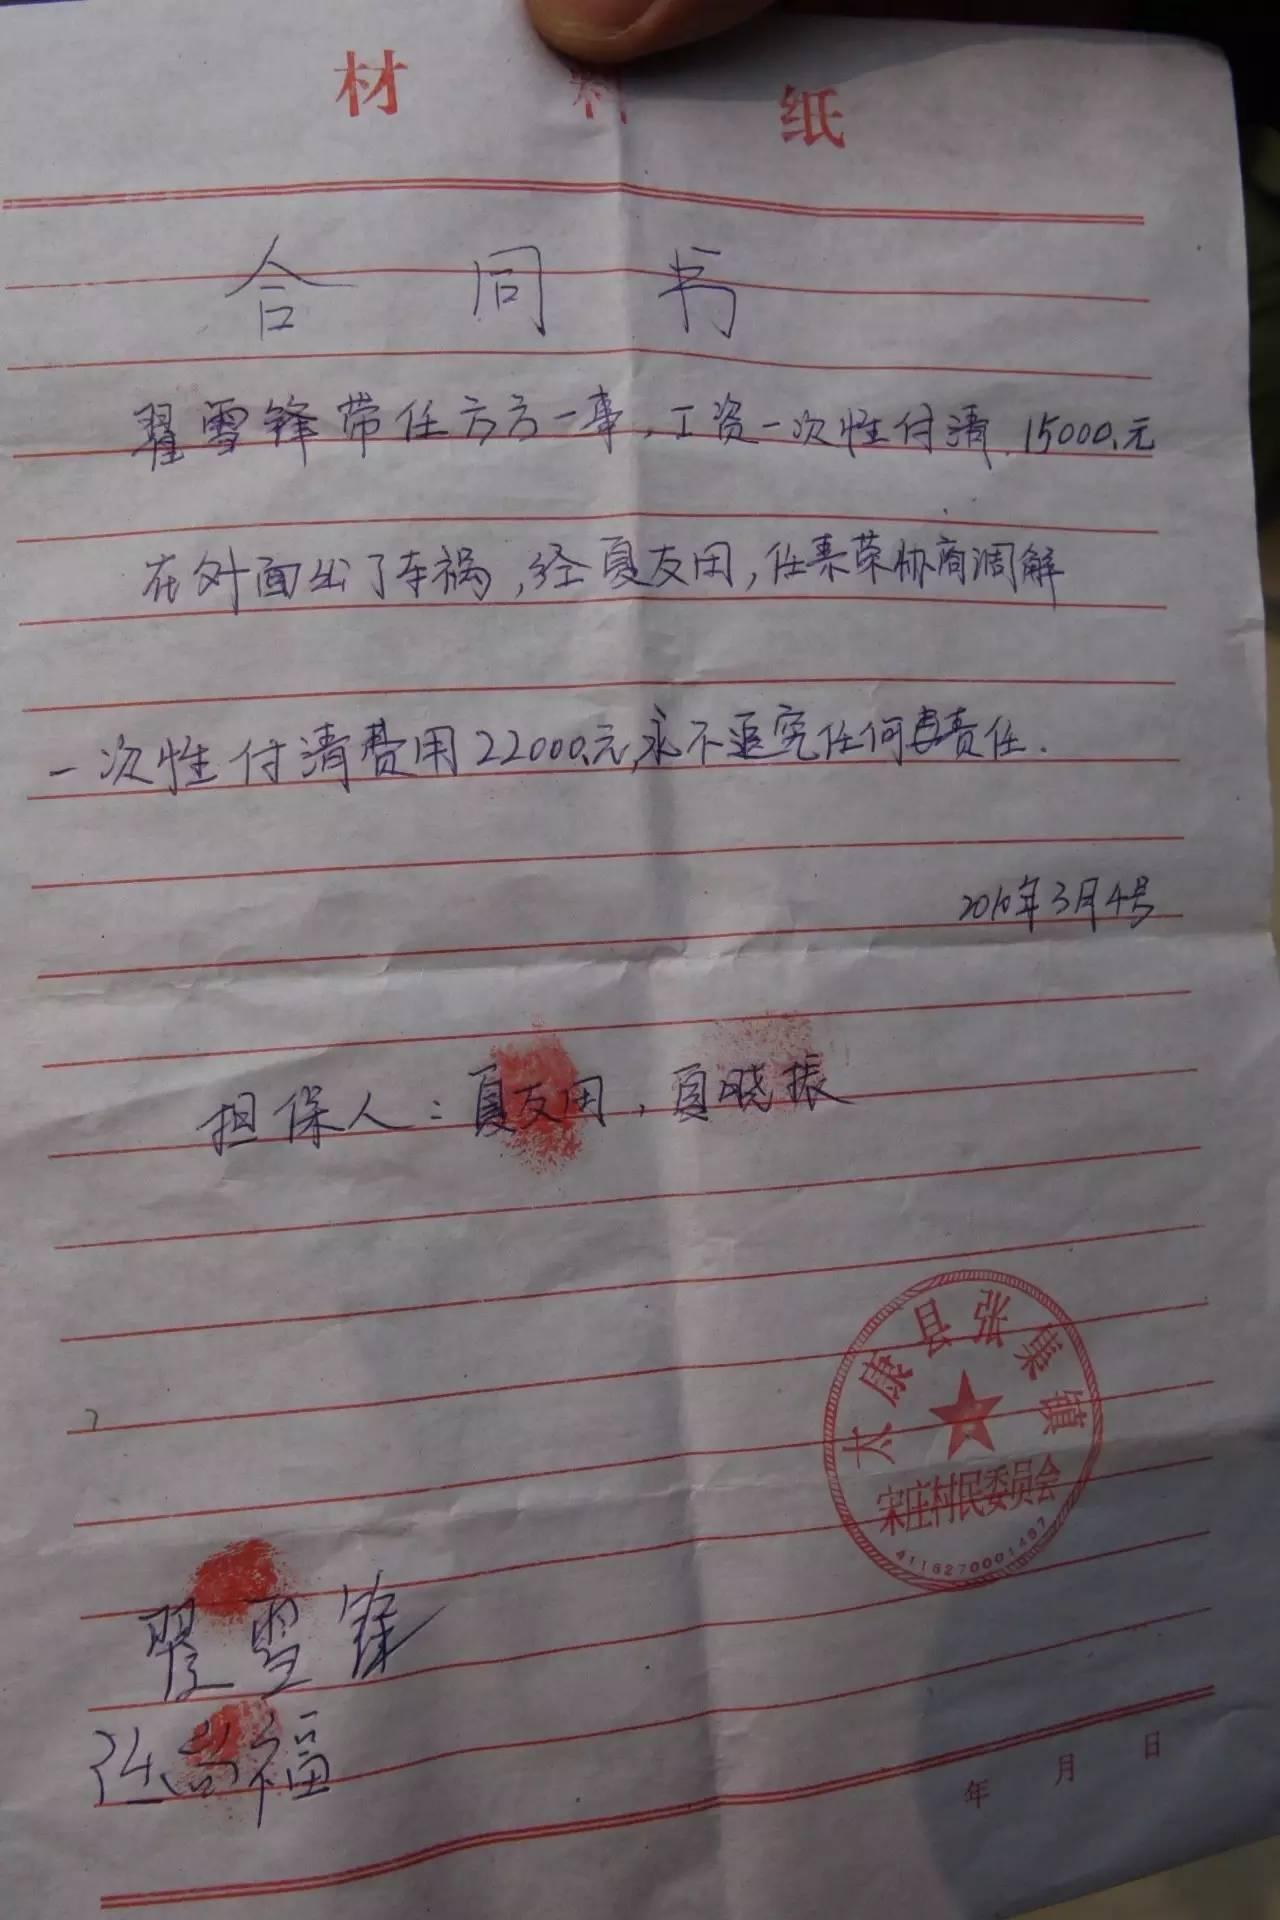 材料纸
合同书
翟雪锋带任方方一事，工资一次性付清.15000元
在外面出了车祸，经夏友田，任素荣协商调解
一次性付清费用22000元，永不追究任何责任.
2010年3月4号
担保人：夏友田，夏晓振
太康县张集镇
宋庄村民委员会
4116270001487
翟雪锋
福
年 月 日